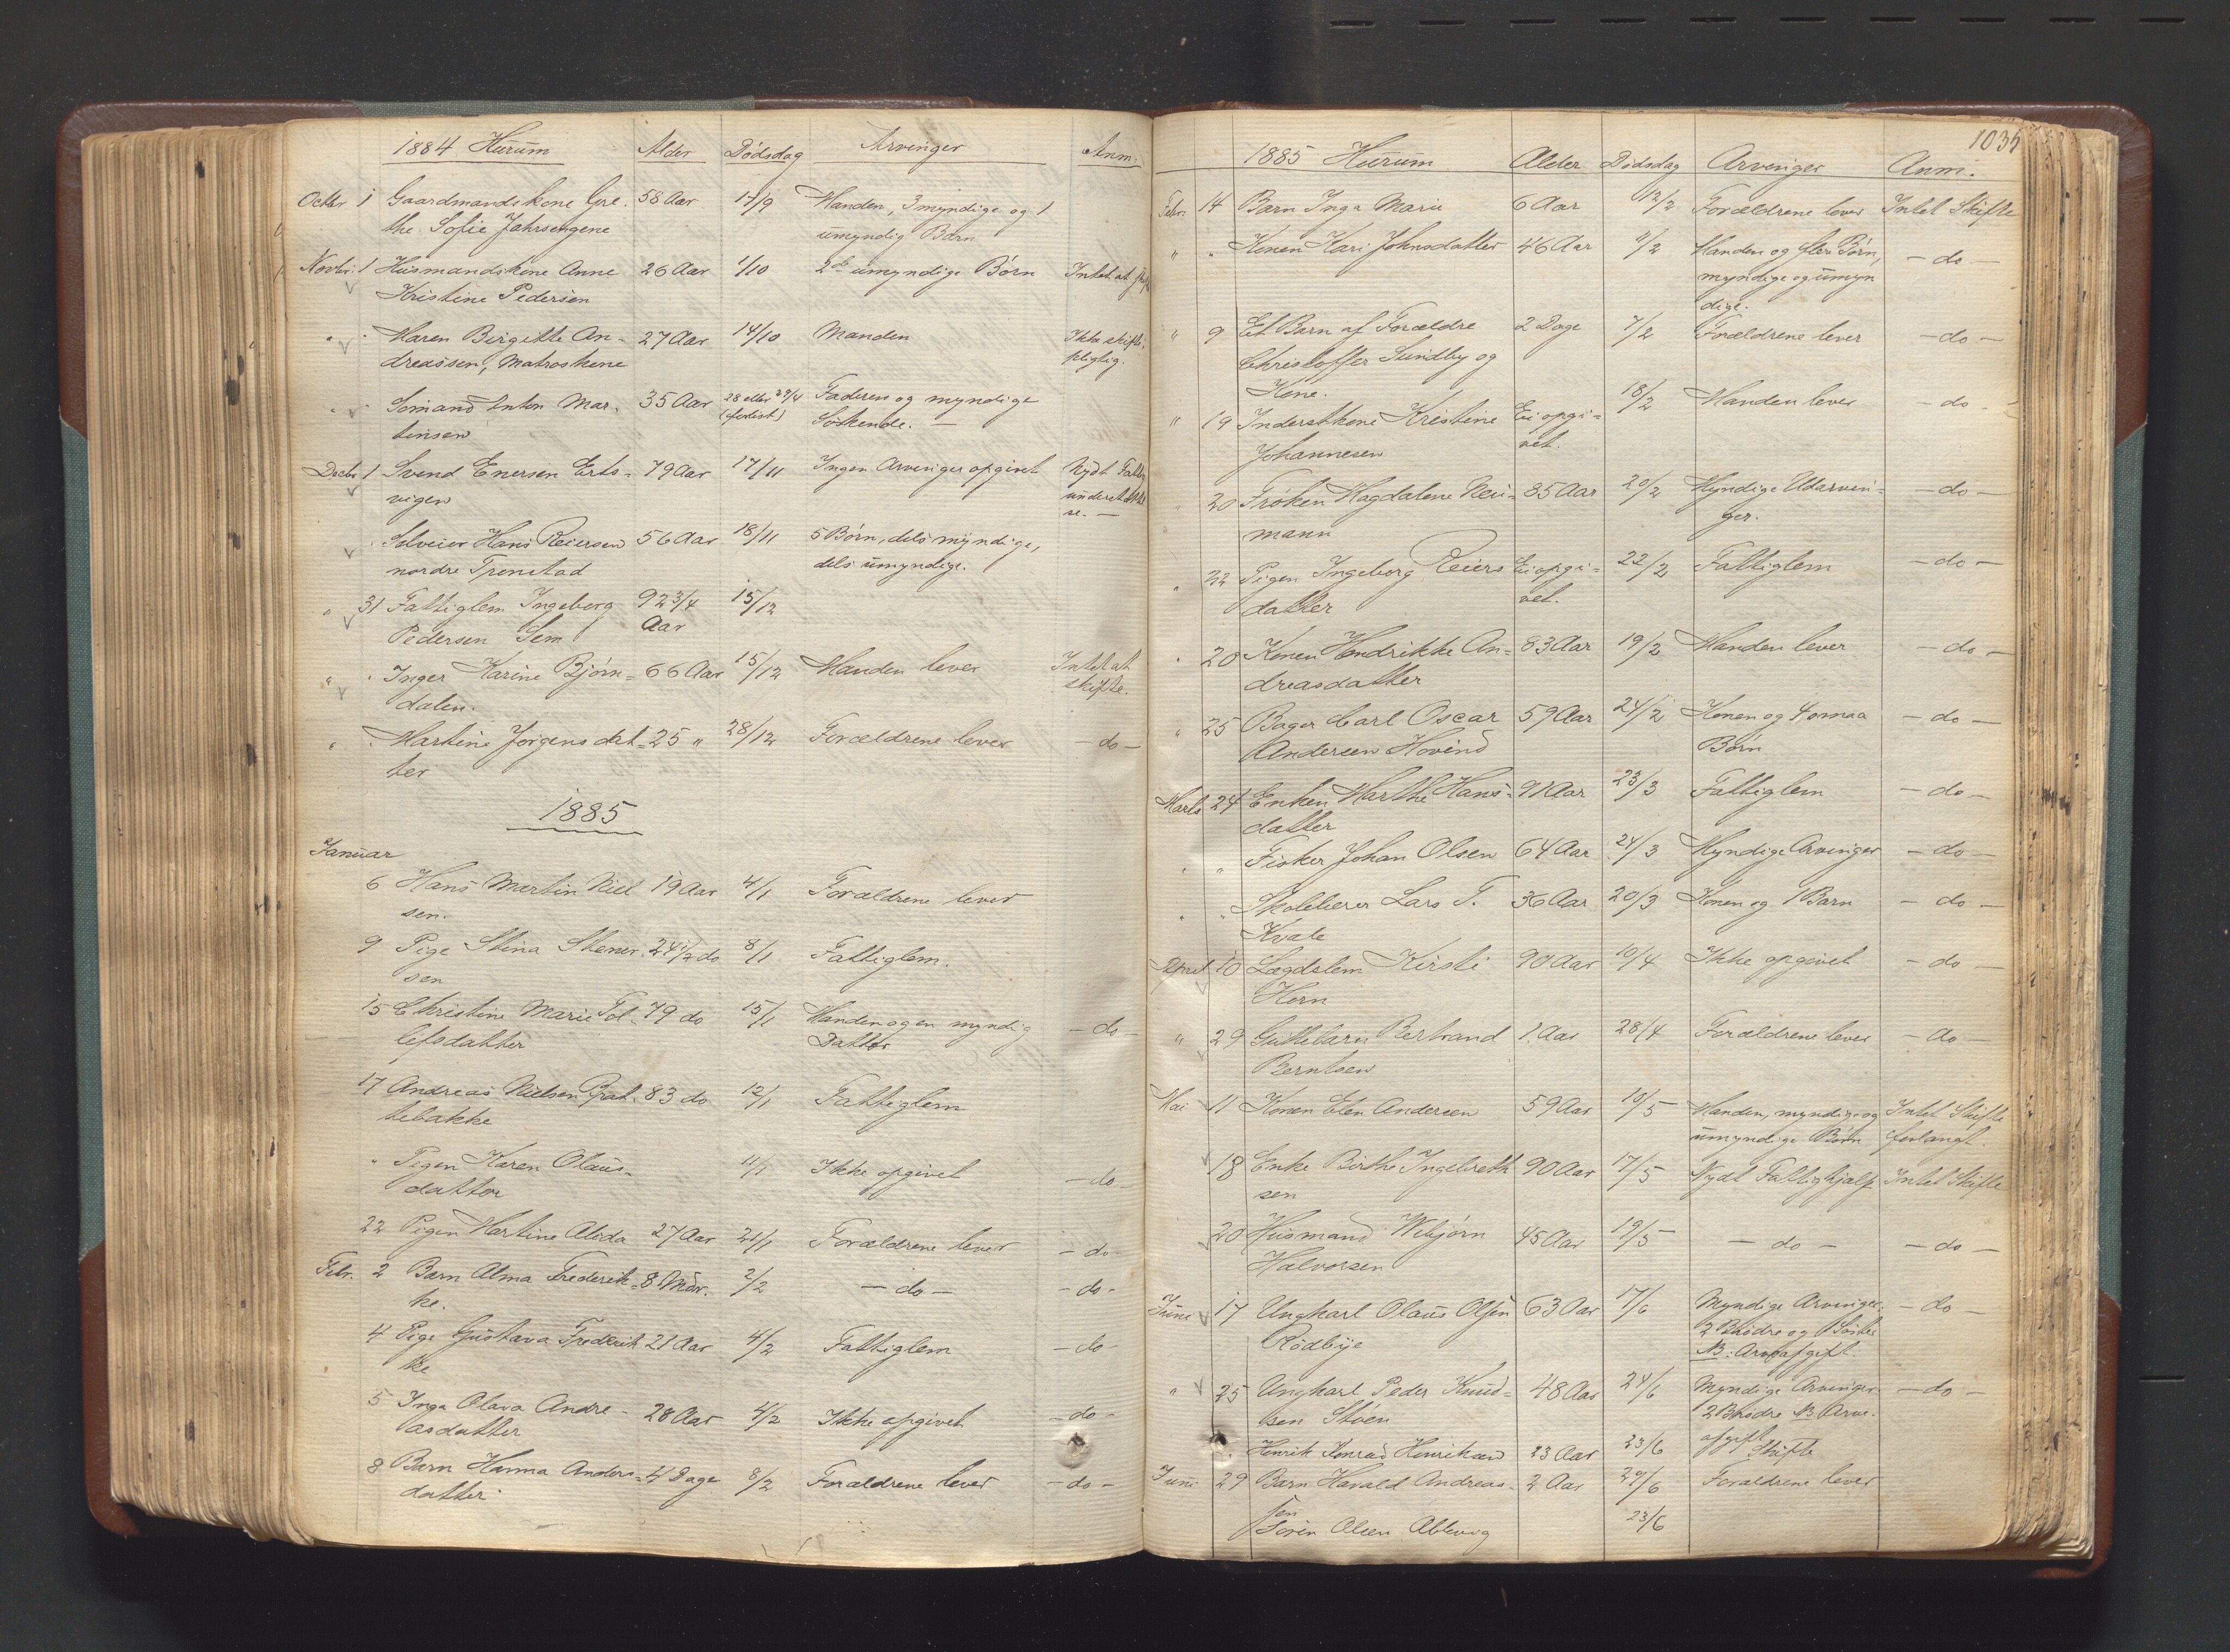 1884 Hurum Alder Dödsdag Arvinger Anm.
Octbr 1 Gaardmandskone Gre- 58 Aar 17/9 Manden, 3 myndige og 1
the Sofie Jahrsengene umyndig Barn
Novbr. 1 Husmandskone Anne 26 Aar 1/10 2de umyndige Börn Intet at skifte
Kristine Pedersen
" " Maren Birgitte An- 27 Aar 14/10 Manden Ikke skifte-
dreassen, Matroskone pligtig.
" " Sömand Anton Mar- 35 Aar 28 eller 29/4 Faderen og myndige
tinsen (forlist) Söskende. —
Decbr 1 Svend Enersen Erts- 79 Aar 17/11 Ingen Arvinger opgivet Nydt Fattig
vigen understöttel
se. —
" Selveier Hans Reiersen 56 Aar 18/11 5 Börn, dels myndige,
nordre Tronstad dels umyndige.
" 31 Fattiglem Ingeborg 92 3/4 15/12
Pedersen Sem Aar
" " Inger Karine Björn- 66 Aar 15/12 Manden lever Intet at
dalen. skifte.
" " Martine Jörgensdat- 25 " 28/12 Forældrene lever — do —
ter
1885
Januar
6 Hans Martin Niel 19 Aar 4/1 Forældrene lever
sen.
9 Pige Stina Stener- 24 1/2 do 8/1 Fattiglem.
sen
15 Christine Marie Tol- 79 do 15/1 Manden og en myndig — do —
lefsdatter Datter
17 Andreas Nielsen Brat- 83 do 12/1 Fattiglem
tebakke
" Pigen Karen Olaus- 11/1 Ikke opgivet — do —
datter
22 Pigen Martine Alida 27 Aar 21/1 Forældrene lever — do —
Febr. 2 Barn Alma Frederik- 8 Mdr. 2/2 — do — — do —
ke.
4 Pige Gustava Frederik 21 Aar 4/2 Fattiglem — do —
ke
5 Inga Olava Andre- 28 Aar 4/2 Ikke opgivet — do —
asdatter
8 Barn Hanna Anders- 4 Dage 8/2 Forældrene lever — do —
datter
1035
1885 Hurum Alder Dödsdag Arvinger Anm.
Febr. 14 Barn Inga Marie 6 Aar 12/2 Forældrene lever Intet Skifte
" " Konen Kari Johnsdatter 46 Aar 11/2 Manden og flere Börn, — do —
myndige og umyn
dige.
" 9 Et Barn af Forældre 2 Dage 7/2 Forældrene lever — do —
Christoffer Sundby og
Kone.
" 19 Inderstkone Kristine Ei opgi- 18/2 Manden lever — do —
Johannesen vet.
" 20 Fröken Magdalene Neu- 85 Aar 20/2 Myndige Udarvin- — do —
mann ger.
" 22 Pigen Ingeborg Reiers Ei opgi- 22/2 Fattiglem — do —
datter vet.
" 20 Konen Hendrikke An- 83 Aar 19/2 Manden lever — do —
dreasdatter
" 25 Bager Carl Oscar 59 Aar 24/2 Konen og 4 smaa — do —
Andersen Hovind Börn
Marts 24 Enken Marthe Hans- 91 Aar 23/3 Fattiglem — do —
datter
" " Fisker Johan Olsen 64 Aar 24/3 Myndige Arvinger — do —
" " Skolelærer Lars T. 36 Aar 20/3 Konen og 1 Barn — do —
Kvale
April 10 Lægdslem Kirsti 90 Aar 10/4 Ikke opgivet — do —
Horn
" 29 Guttebarn Bertrand 1 Aar 28/4 Forældrene lever — do —
Berntsen
Mai 11 Konen Elen Andersen 59 Aar 10/5 Manden, myndige og Intet Skifte
umyndige Börn forlangt.
18 Enke Birthe Ingebreth 90 Aar 17/5 Nydt Fattighjælp Intet Skifte
sen
20 Husmand Wibjörn 45 Aar 19/5 — do — — do —
Halvorsen
June 17 Ungkarl Olaus Olsen 63 Aar 17/6 Myndige Arvinger: — do —
Rödbye 2 Brödre og 1 Söster
NB: Arveafgift.
" 25 Ungkarl Peder Knud- 48 Aar 24/6 Myndige Arvinger — do —
sen Stöen 2 Brödre NB Arve-
afgift
Henrik Konrad Henriksen 23 Aar 23/6 Skifte
Juni 29 Barn Harald Andreas- 2 Aar 29/6 Forældrene lever
sen
Sören Olsen 23/6